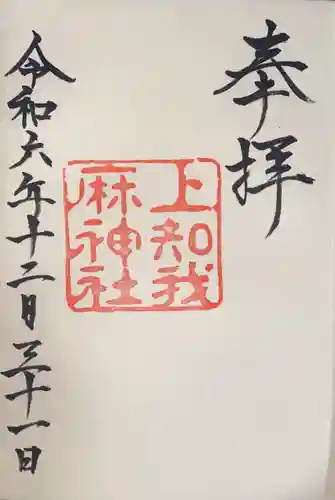 奉拝
上知我
麻神社
令和六年十二日三十一日